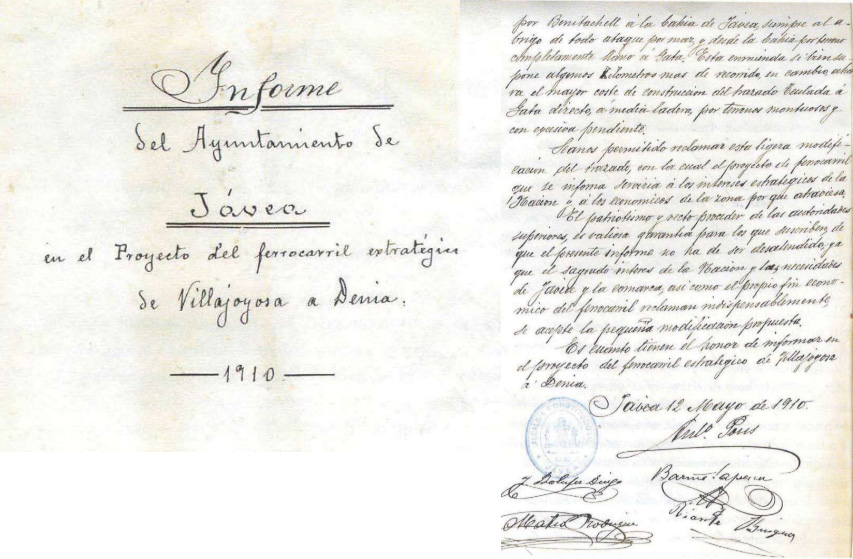 Informe
del Ayuntamiento de
Jávea
en el Proyecto del ferrocarril estratégico
de Villajoyosa a Denia.
1910
por Benitachell á la bahia de Jávea, siempre al a-
brigo de todo ataque por mar, y desde la bahia por terreno
completamente llano á Gata. Esta enmienda si bien su-
pone algunos Kilometros mas de recorrido, en cambio aho-
rra el mayor coste de construcion del trazado Teulada á
Gata directo, á media ladera, por terrenos montuosos y
con excesiva pendiente.
Séanos permitido reclamar esta ligera modifi-
cacion del trazado, con la cual el proyecto de ferrocarril
que se informa serviria á los intereses estratégicos de la
Nacion y á los economicos de la zona por que atraviesa.
El patriotismo y recto proceder de las autoridades
superiores, es valiosa garantia para los que suscriben, de
que el presente informe no ha de ser desatendido, ya
que el sagrado interes de la Nación y las necesidades
de Javea y la comarca, asi como el propio fin econo-
mico del ferrocarril reclaman indispensablemente,
se acepte la pequeña modificacion propuesta.
Es cuanto tienen el honor de informar en
el proyecto del ferrocarril estratégico de Villajoyosa
á Denia.
Javea 12 Mayo de 1910.
Pons